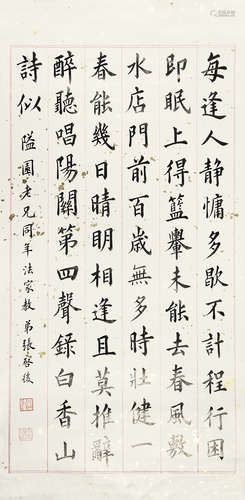 每逢人静慵多歇不計程行困
即眠上得籃轝未能去春風敷
水店門前百歲無多時壯健一
春能幾日晴明相逢且莫推辭
醉聽唱陽關第四聲錄白香山
詩似 隘園老兄同年法家教 弟張啓後